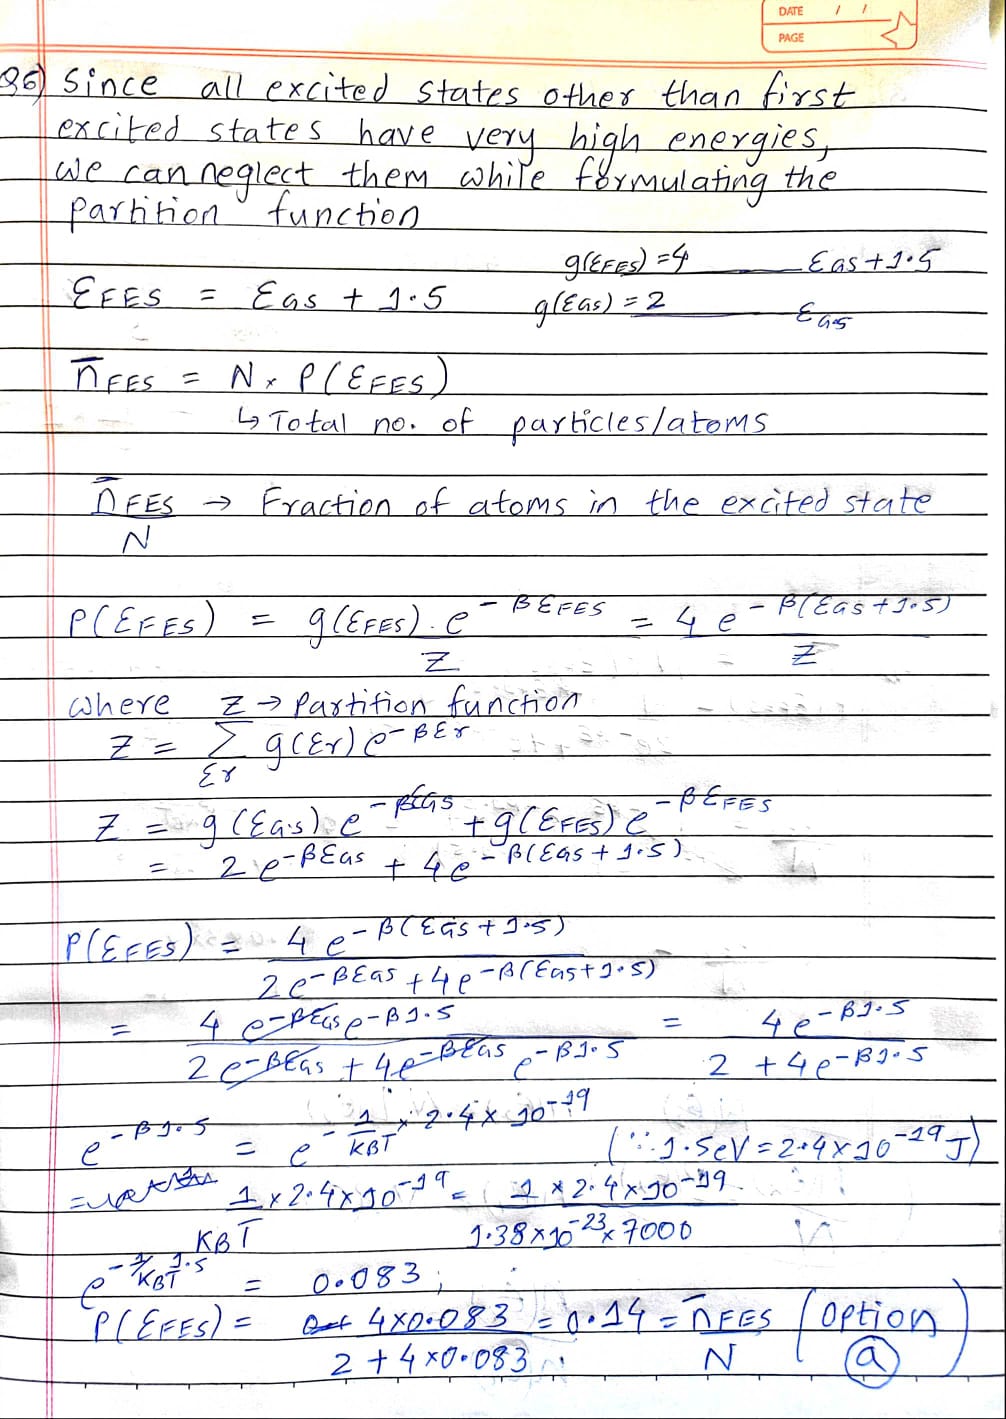 DATE / /
PAGE
Q6) Since all excited states other than first
excited states have very high energies,
we can neglect them while formulating the
partition function
g(ℇFES) = 4 ℇGS + 1.5
ℇFES = ℇGS + 1.5 g(ℇGS) = 2 ℇGS
n̄FES = N × P(ℇFES)
↳ Total no. of particles/atoms
n̄FES → Fraction of atoms in the excited state
N
P(ℇFES) = g(ℇFES) . e^-βℇFES = 4 e^-β(ℇGS + 1.5)
Z Z
where Z → Partition function
Z = Σ g(ℇr) e^-βℇr
ℇr
Z = g(ℇGS) e^-βℇGS + g(ℇFES) e^-βℇFES
= 2 e^-βℇGS + 4 e^-β(ℇGS + 1.5)
P(ℇFES) = 4 e^-β(ℇGS + 1.5)
2 e^-βℇGS + 4 e^-β(ℇGS + 1.5)
= 4 e^-βℇGS e^-β1.5 = 4 e^-β1.5
2 e^-βℇGS + 4 e^-βℇGS e^-β1.5 2 + 4 e^-β1.5
e^-β1.5 = e^-1/KBT × 2.4 × 10^-19 (∵ 1.5eV = 2.4 × 10^-19 J)
= 1 × 2.4 × 10^-19 = 1 × 2.4 × 10^-19
KBT 1.38 × 10^-23 × 7000
e^-1/KBT 1.5 = 0.083 ;
P(ℇFES) = 4 × 0.083 = 0.14 = n̄FES (option
2 + 4 × 0.083 N ⓐ)